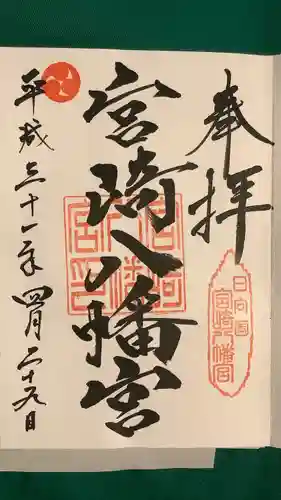 奉拝
日向国
宮崎八幡宮
宮琦八幡宮
平成三十一年四月二十九日